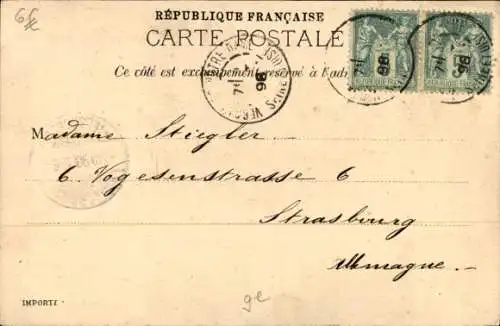 RÉPUBLIQUE FRANÇAISE
CARTE POSTALE
Ce côté est exclusivement réservé à
98
98
98
Madame Stiegler
6. Vogesenstrasse 6
Strasbourg
Allemagne.
IMPORTÉ